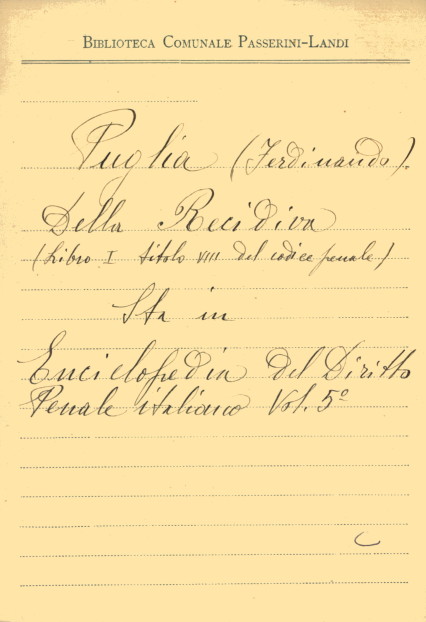 BIBLIOTECA COMUNALE PASSERINI-LANDI
Puglia (Ferdinando).
Della Recidiva
(Libro I titolo VIII del codice penale)
Sta in
Enciclopedia del Diritto
Penale italiano Vol. 5º